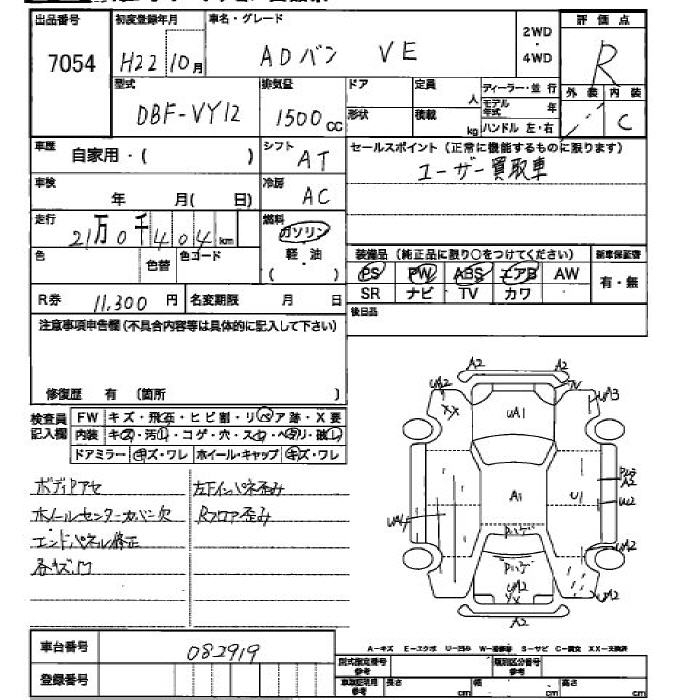 出品番号 初度登録年月 車名・グレード 評価点
7054 H22 10月 ADバン VE 2WD・4WD R
型式 排気量 ドア 定員 人 ディーラー・並行 外装 内装
DBF-VY12 1500cc 形状 積載 kg モデル年式 年 ハンドル 左・右 C
車歴 自家用・( ) シフト AT セールスポイント(正常に機能するものに限ります)
ユーザー買取車
車検 年 月( 日) 冷房 AC
走行 21万0千404km 燃料 ガソリン
軽・油
( )
色 色替 色コード
装備品(純正品に限り○をつけてください) 新車保証書
PS PW ABS エアB AW 有・無
SR ナビ TV カワ
R券 11,300円 名変期限 月 日 後日品
注意事項申告欄(不具合内容等は具体的に記入して下さい)
修復歴 有 (箇所 )
検査員記入欄 FW キズ・飛石・ヒビ割・リペア跡・X要
内装 キズ・汚レ・コゲ・穴・スレ・ヘタリ・破レ
ドアミラー キズ・ワレ ホイール・キャップ キズ・ワレ
ボディアセ
ホイールセンターカバー欠
エンドパネル修正
各キズ凹
左Fインパネ歪み
Rフロア歪み
A2 A2
UA2 XX UA1 UA3
A1 U1 A2 U2
UA4
Pハゲ
Pハゲ UA2
UA2 XX UA2
A2
A-キズ E-エクボ U-凹み W-補修跡 S-サビ C-腐食 XX-交換済
車台番号 082919
登録番号
型式指定番号 参考 類別区分番号 参考
車検証使用 参考 長さ cm 幅 cm 高さ cm